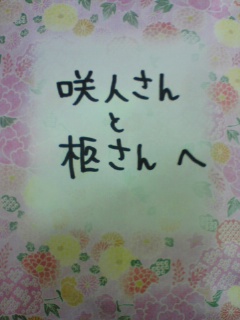 咲人さん
と
柩さん へ